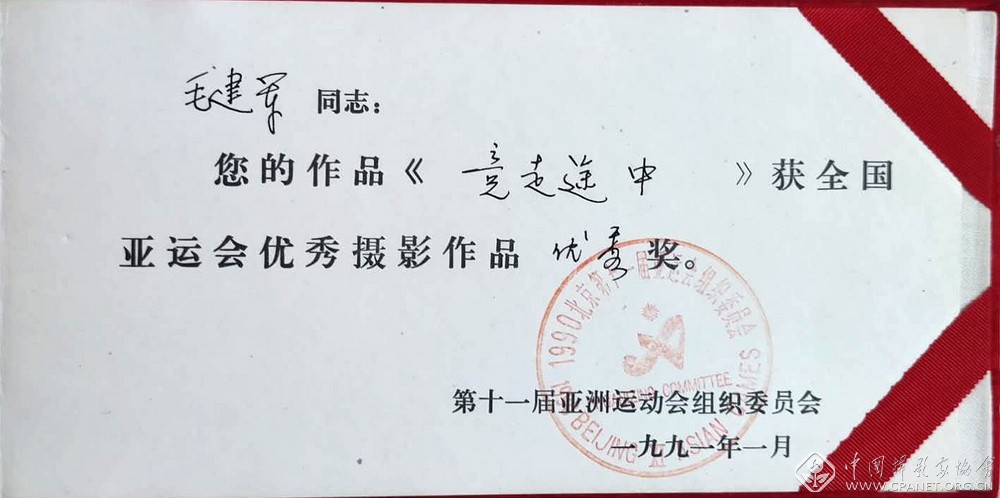 毛建军 同志：
您的作品《 竞走途中 》获全国
亚运会优秀摄影作品 优秀 奖。
1990北京第十一届亚运会组织委员会
ORGANIZING COMMITTEE
BEIJING XI ASIAN GAMES
第十一届亚洲运动会组织委员会
一九九一年一月
中国摄影家协会
WWW.CPANET.ORG.CN